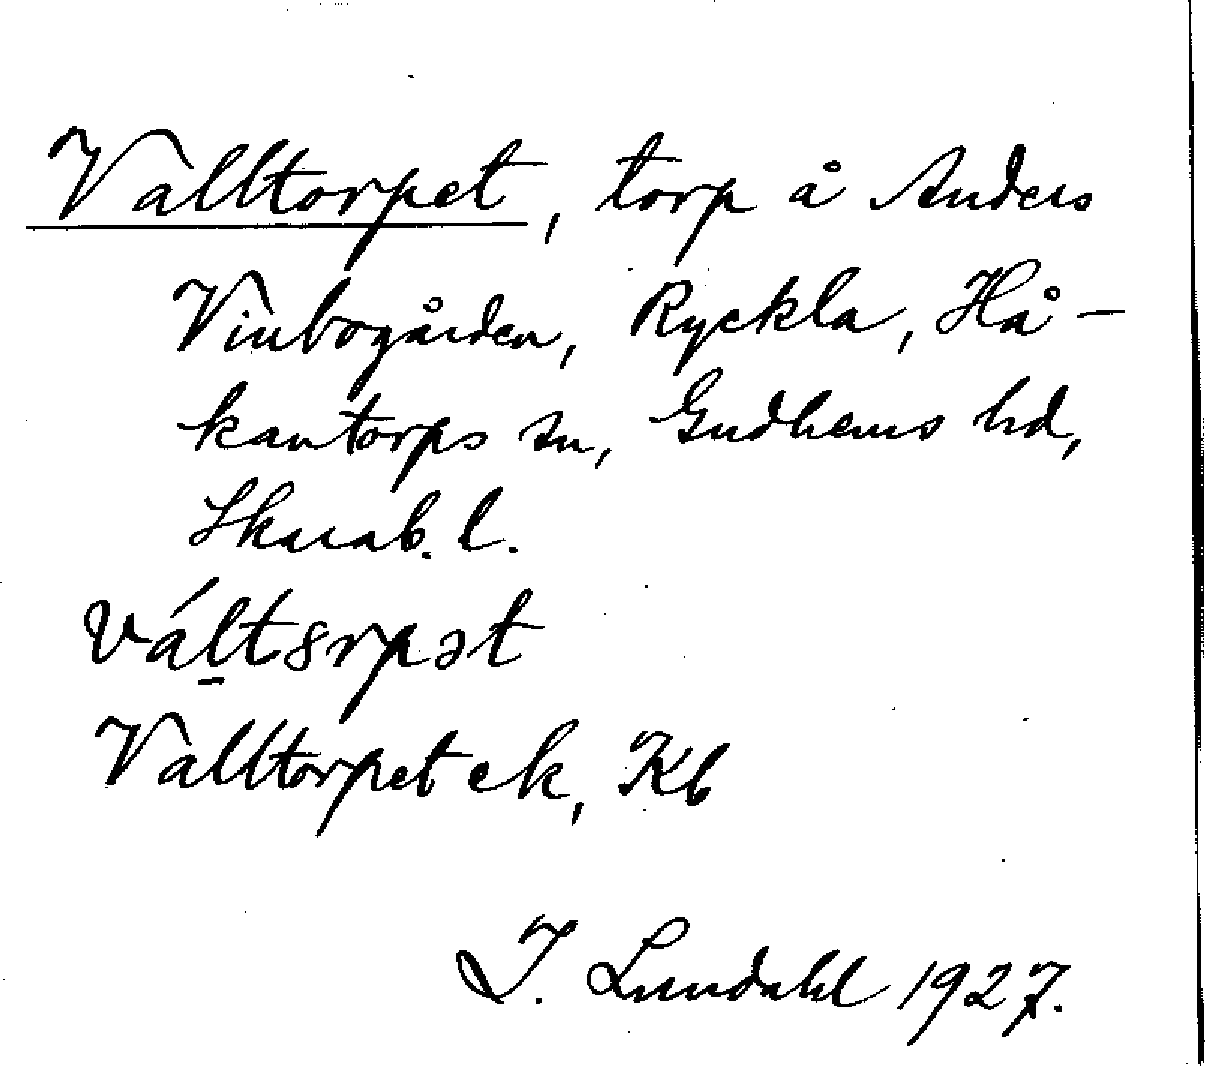 Valltorpet, torp å Anders
Vinbogården, Ryckla, Hå-
kantorps sn, Gudhems hd,
Skarab. l.
vált8rpət
Valltorpet ek, Kb
I. Lundahl 1927.